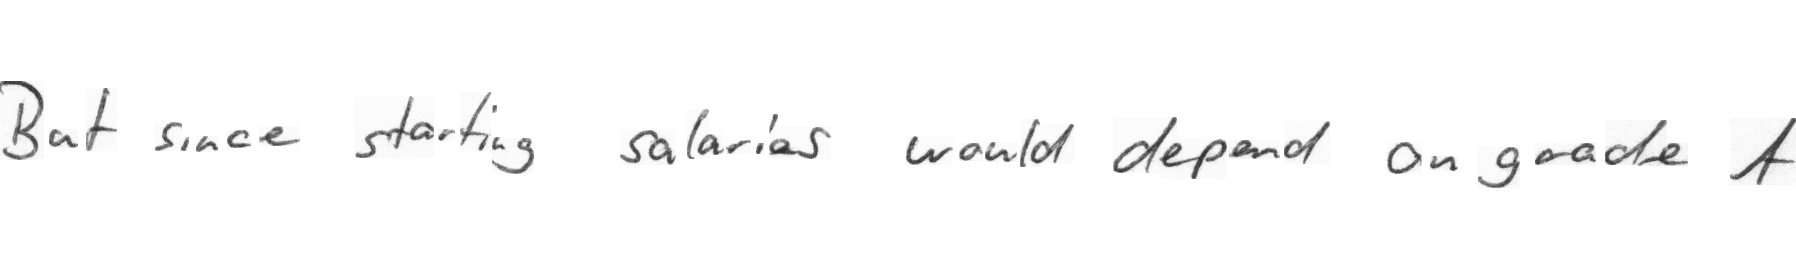 But since starting salaries would depend on grade A